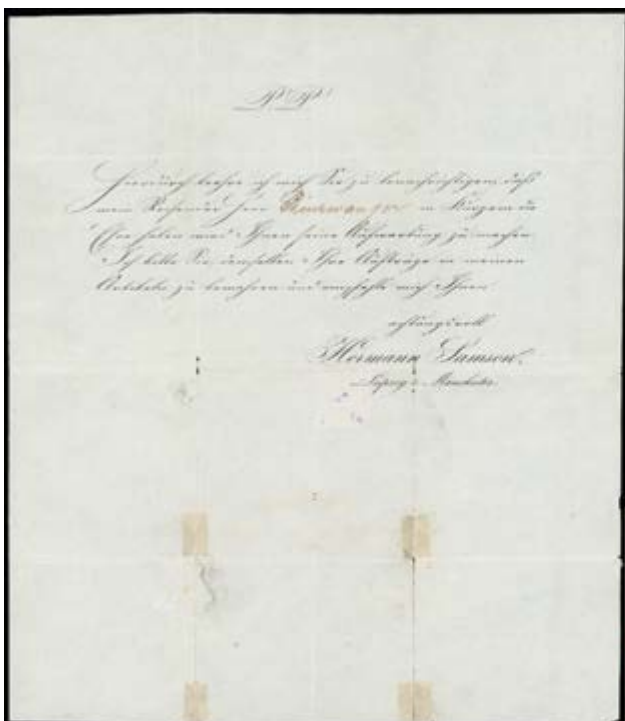 P. P.
Hierdurch beehre ich mich Sie zu benachrichtigen, daß
mein Reisender Herr in Kurzem die
Ehre haben wird Ihnen seine Aufwartung zu machen.
Ich bitte Sie, demselben Ihre Aufträge in meinen
Artikeln zu bewahren und empfehle mich Ihnen
achtungsvoll
Hermann Samson.
Leipzig & Manchester.